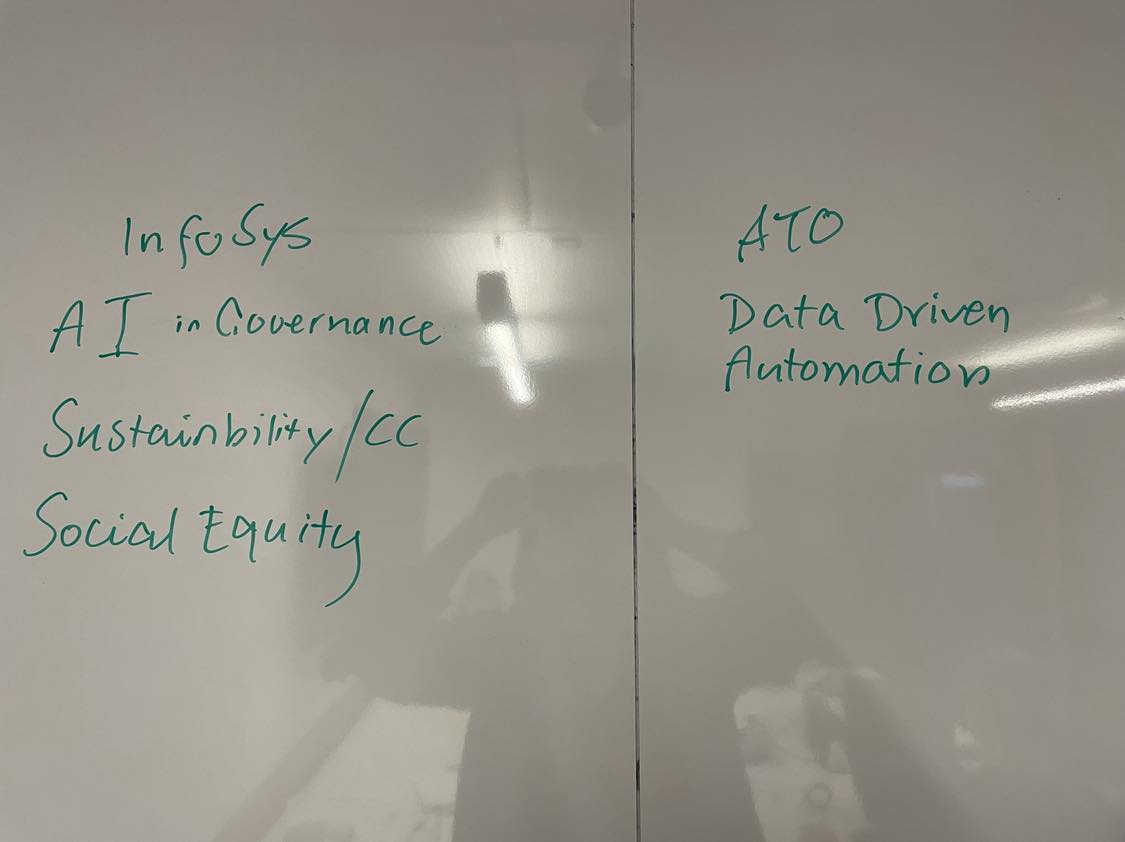 InfoSys
AI in Governance
Sustainbility/CC
Social Equity
ATO
Data Driven
Automation